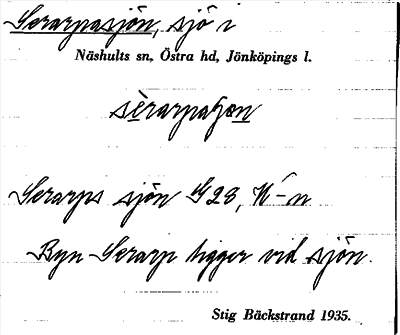 Serarpasjön, sjö i
Näshults sn, Östra hd, Jönköpings l.
Serarps sjön G28, N–n
Byn Serarp ligger vid sjön.
Stig Bäckstrand 1935.